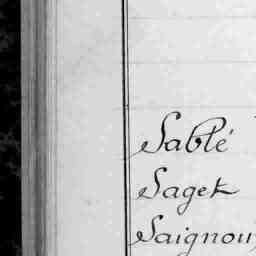 Sablé
Saget
Saignou